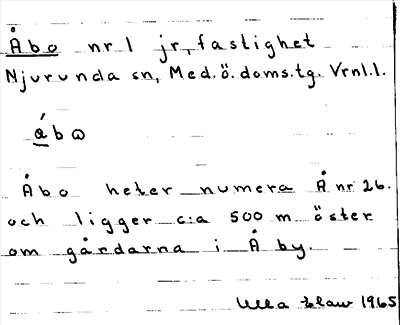 Åbo nr 1 jr, fastighet
Njurunda sn, Med.ö.doms.tg. Vrnl.l.
ábɷ
Åbo heter numera Å nr 26.
och ligger c:a 500 m öster
om gårdarna i Å by.
Ulla 1965